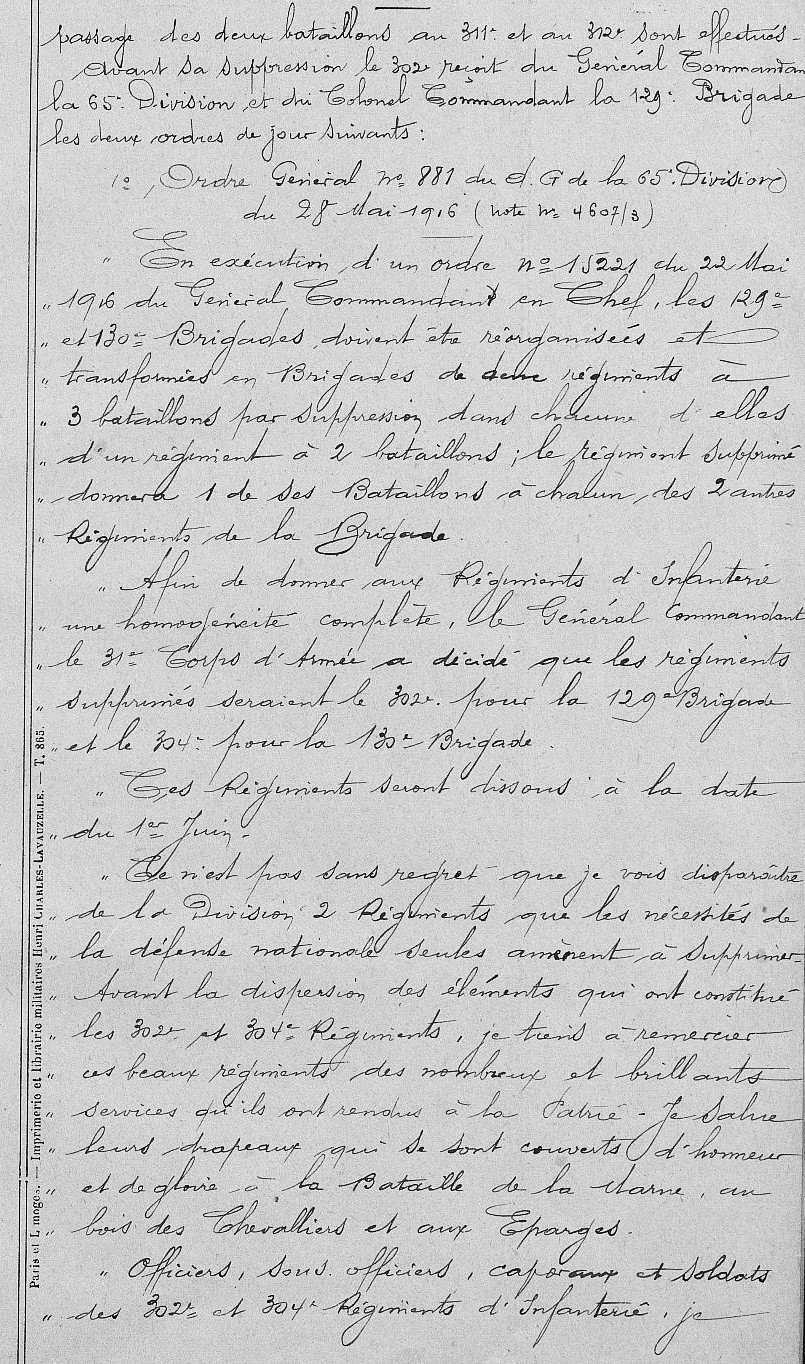 passage des deux bataillons au 311e et au 312e sont effectués -
Avant sa suppression le 302e reçoit du Général Commandan
la 65e Division et du Colonel Commandant la 129e Brigade
les deux ordres de jour suivants :
1o, Ordre Général No 881 du d. G de la 65e Division
du 28 Mai 1916 (note No 4607/3)
" En exécution d'un ordre No 15221 du 22 Mai
" 1916 du Général Commandant en Chef, les 129e
" et 130e Brigades doivent être réorganisées et
" transformées en Brigades de deux régiments à
" 3 bataillons par suppression dans chacune d'elles
" d'un régiment à 2 bataillons ; le régiment supprimé
" donnera 1 de ses Bataillons à chacun des 2 autres
" Régiments de la Brigade.
" Afin de donner aux Régiments d'Infanterie
" une homogéneité complète, le Général Commandant
" le 31e Corps d'Armée a décidé que les régiments
" supprimés seraient le 302e pour la 129e Brigade
" et le 304e pour la 130e Brigade.
" Ces Régiments seront dissous à la date
" du 1er Juin.
" Ce n'est pas sans regret que je vois disparaître
" de la Division 2 Régiments que les nécessités de
" la défense nationale seules amènent à supprimer -
" Avant la dispersion des éléments qui ont constitué
" les 302e et 304e Régiments, je tiens à remercier
" ces beaux régiments des nombreux et brillants
" services qu'ils ont rendus à la Patrie - Je salue
" leurs drapeaux qui se sont couverts d'honneur
" et de gloire à la Bataille de la Marne, au
" bois des Chevalliers et aux Eparges.
" Officiers, sous officiers, caporaux et soldats
" des 302e et 304e Régiments d'Infanterie, je
Paris et Limoges. — Imprimerie et librairie militaires Henri CHARLES-LAVAUZELLE. — T. 865.